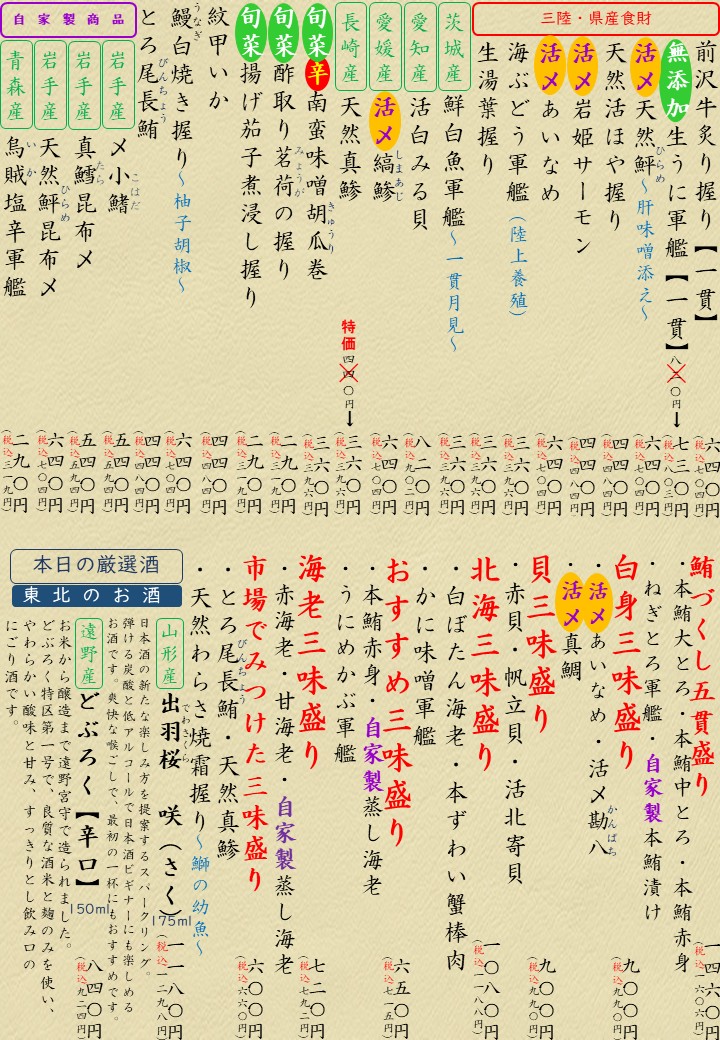 三陸・県産食財
前沢牛炙り握り【一貫】
六四〇円
（税込七〇四円）
無添加
生うに軍艦【一貫】
八三〇円→七三〇円
（税込八〇三円）
活〆
天然鮃～肝味噌添え～
ひらめ
六四〇円
（税込七〇四円）
天然活ほや握り
四四〇円
（税込四八四円）
活〆
岩姫サーモン
四四〇円
（税込四八四円）
活〆
あいなめ
六四〇円
（税込七〇四円）
海ぶどう軍艦（陸上養殖）
三六〇円
（税込三九六円）
生湯葉握り
三六〇円
（税込三九六円）
茨城産
鮮白魚軍艦～一貫月見～
三六〇円
（税込三九六円）
愛知産
活白みる貝
八二〇円
（税込九〇二円）
愛媛産
活〆
縞鯵
しまあじ
六四〇円
（税込七〇四円）
長崎産
天然真鯵
特価
四四〇円→三六〇円
（税込三九六円）
旬菜
辛
南蛮味噌胡瓜巻
きゅうり
三六〇円
（税込三九六円）
旬菜
酢取り茗荷の握り
みょうが
二九〇円
（税込三一九円）
旬菜
揚げ茄子煮浸し握り
二九〇円
（税込三一九円）
紋甲いか
四四〇円
（税込四八四円）
鰻白焼き握り～柚子胡椒～
うなぎ
六四〇円
（税込七〇四円）
とろ尾長鮪
びんちょう
四四〇円
（税込四八四円）
自家製商品
岩手産
〆小鰭
こはだ
五四〇円
（税込五九四円）
岩手産
真鱈昆布〆
たら
五四〇円
（税込五九四円）
岩手産
天然鮃昆布〆
ひらめ
六四〇円
（税込七〇四円）
青森産
烏賊塩辛軍艦
いか
二九〇円
（税込三一九円）
鮪づくし五貫盛り
・本鮪大とろ・本鮪中とろ・本鮪赤身
・ねぎとろ軍艦・自家製本鮪漬け
一四六〇円
（税込一六〇六円）
白身三味盛り
・活〆あいなめ・活〆勘八
かんぱち
・活〆真鯛
九〇〇円
（税込九九〇円）
貝三味盛り
・赤貝・帆立貝・活北寄貝
九〇〇円
（税込九九〇円）
北海三味盛り
・白ぼたん海老・本ずわい蟹棒肉
・かに味噌軍艦
一〇八〇円
（税込一一八八円）
おすすめ三味盛り
・本鮪赤身・自家製蒸し海老
・うにめかぶ軍艦
六五〇円
（税込七一五円）
海老三味盛り
・赤海老・甘海老・自家製蒸し海老
七二〇円
（税込七九二円）
市場でみつけた三味盛り
・とろ尾長鮪・天然真鯵
びんちょう
・天然わらさ焼霜握り～鰤の幼魚～
六〇〇円
（税込六六〇円）
本日の厳選酒
東北のお酒
山形産
出羽桜　咲（さく）
でわさくら
175ml
一一八〇円
（税込一二九八円）
日本酒の新たな楽しみ方を提案するスパークリング。
弾ける炭酸と低アルコールで日本酒ビギナーにも楽しめる
お酒です。爽快な喉ごしで、最初の一杯にもおすすめです。
遠野産
どぶろく【辛口】
150ml
八四〇円
（税込九二四円）
お米から醸造まで遠野宮守で造られました。
どぶろく特区第一号で、良質な酒米と麹のみを使い、
やわらかい酸味と甘み、すっきりとし飲み口の
にごり酒です。